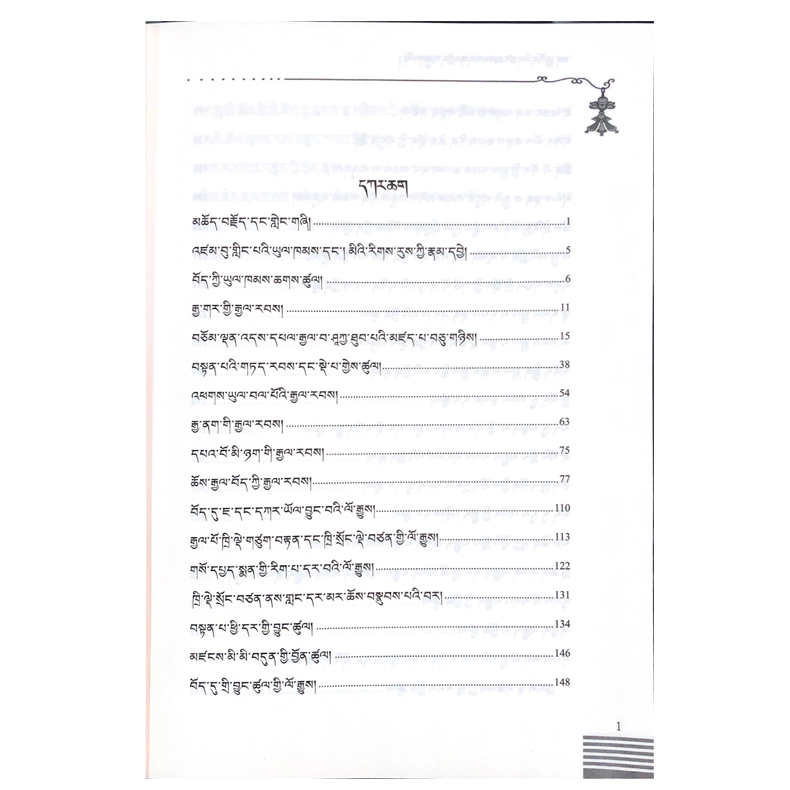 དཀར་ཆག
མཆོད་བརྗོད་དང་གླེང་གཞི། 1
འཛམ་བུ་གླིང་པའི་ཡུལ་ཁམས་དང་། མིའི་རིགས་རུས་ཀྱི་རྣམ་དབྱེ། 5
བོད་ཀྱི་ཡུལ་ཁམས་ཆགས་ཚུལ། 6
རྒྱ་གར་གྱི་རྒྱལ་རབས། 11
བཅོམ་ལྡན་འདས་དཔལ་རྒྱལ་བ་ཤཱཀྱ་ཐུབ་པའི་མཛད་པ་བཅུ་གཉིས། 15
བསྟན་པའི་གཏད་རབས་དང་སྡེ་པ་གྱེས་ཚུལ། 38
འཕགས་ཡུལ་བལ་པོའི་རྒྱལ་རབས། 54
རྒྱ་ནག་གི་རྒྱལ་རབས། 63
དཔའ་བོ་མི་ཉག་གི་རྒྱལ་རབས། 75
ཆོས་རྒྱལ་བོད་ཀྱི་རྒྱལ་རབས། 77
བོད་དུ་ཇ་དང་དཀར་ཡོལ་བྱུང་བའི་ལོ་རྒྱུས། 110
རྒྱལ་པོ་ཁྲི་ལྡེ་གཙུག་བརྟན་དང་ཁྲི་སྲོང་ལྡེ་བཙན་གྱི་ལོ་རྒྱུས། 113
གསོ་དཔྱད་སྨན་གྱི་རིག་པ་དར་བའི་ལོ་རྒྱུས། 122
ཁྲི་ལྡེ་སྲོང་བཙན་ནས་གླང་དར་མར་ཆོས་བསྣུབས་པའི་བར། 131
བསྟན་པ་ཕྱི་དར་གྱི་བྱུང་ཚུལ། 134
མཛངས་མི་མི་བདུན་གྱི་བྱོན་ཚུལ། 146
བོད་དུ་གྲི་བྱུང་ཚུལ་གྱི་ལོ་རྒྱུས། 148
1